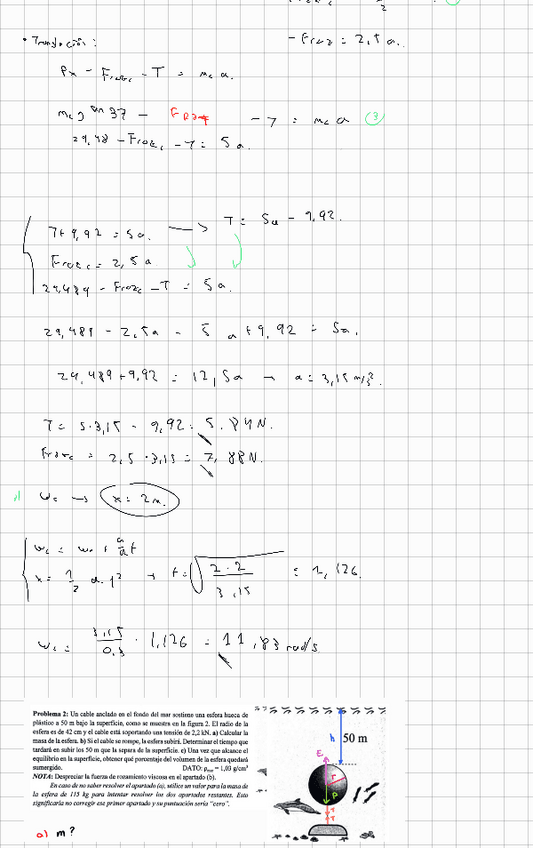 2
- Froz = 2,5 a.
• Translación:
Px - Froz_c - T = m_c a.
m_c g sin 37 - Froz - T = m_c a ③
29,48 - Froz_c - T = 5 a.
T + 9,92 = 5a. → T = 5a - 9,92.
Froz_c = 2,5 a
29,489 - Froz_c - T = 5a.
29,489 - 2,5a - 5a + 9,92 = 5a.
29,489 + 9,92 = 12,5a → a = 3,15 m/s².
T = 5·3,15 - 9,92 = 5,84N.
Froz_c = 2,5 · 3,15 = 7,88N.
ω_c → x = 2m.
x = 1/2 a·t² → t = √(2·2/3,15) = 1,126.
ω_c = 3,15/0.3 · 1,126 = 11,83 rad/s
Problema 2: Un cable anclado en el fondo del mar sostiene una esfera hueca de
plástico a 50 m bajo la superficie, como se muestra en la figura 2. El radio de la
esfera es de 42 cm y el cable está soportando una tensión de 2,2 kN. a) Calcular la
masa de la esfera. b) Si el cable se rompe, la esfera subirá. Determinar el tiempo que
tardará en subir los 50 m que la separa de la superficie. c) Una vez que alcance el
equilibrio en la superficie, obtener qué porcentaje del volumen de la esfera quedará
sumergido. DATO: ρ_mar = 1,03 g/cm³
NOTA: Despreciar la fuerza de rozamiento viscosa en el apartado (b).
En caso de no saber resolver el apartado (a), utilice un valor para la masa de
la esfera de 115 kg para intentar resolver los dos apartados restantes. Esto
significaría no corregir ese primer apartado y su puntuación sería "cero".
h
50 m
E
r
P
T
T
a) m?